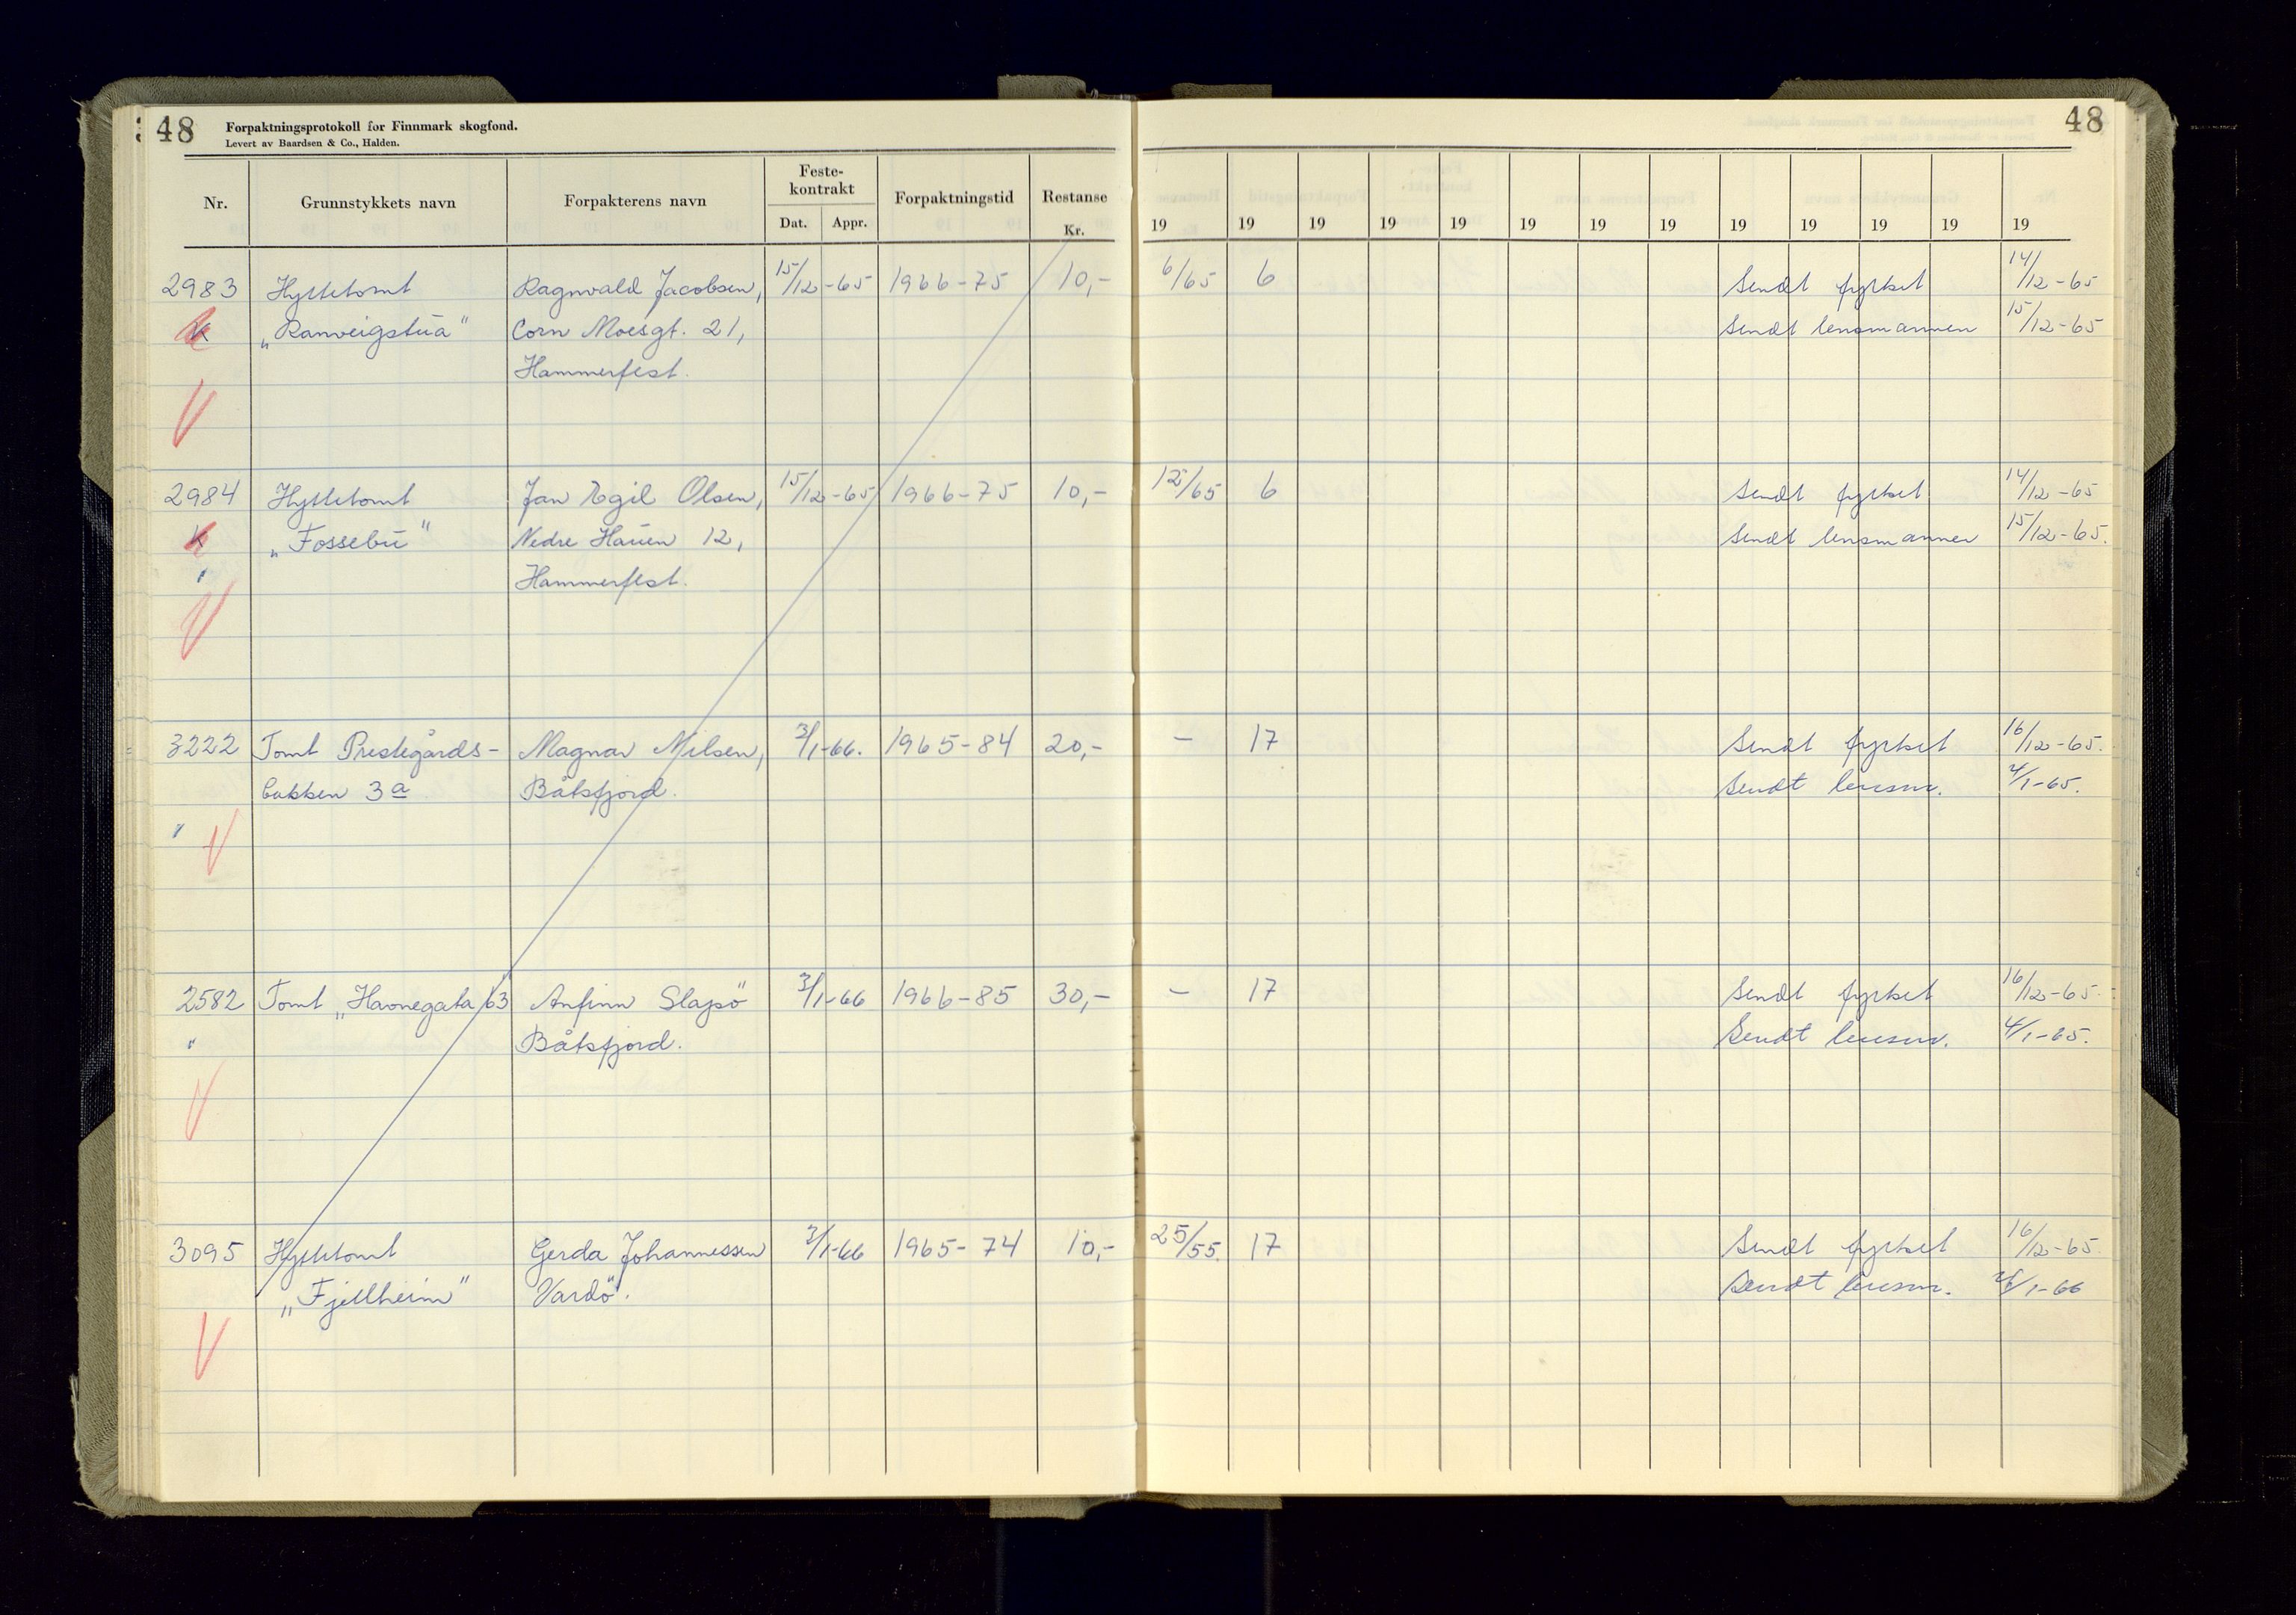 48 Forpaktningsprotokoll for Finnmark skogfond. 48
Levert av Baardsen & Co., Halden.
Nr. Grunnstykkets navn Forpakterens navn Feste-kontrakt Forpaktningstid Restanse
Dat. Appr. Kr. 19 19 19 19 19 19 19 19 19 19 19 19 19
2983 Hyttetomt Ragnvald Jacobsen, 15/12-65 1966-75 10,- 6/65 6 Sendt fyrket 14/12-65
K „Ranveigstua" Corn Moesgt. 21, Sendt lensmannen 15/12-65
Hammerfest.
V
2984 Hyttetomt Jan Egil Olsen, 15/12-65 1966-75 10,- 12/65 6 Sendt fyrket 14/12-65
K „Fossebu" Nedre Hauen 12, Sendt lensmannen 15/12-65.
Hammerfest.
V
3222 Tomt Prestegårds- Magnar Nilsen, 3/1-66. 1965-84 20,- - 17 Sendt fyrket 16/12-65.
bakken 3a Båtsfjord. Sendt lensm. 4/1-65.
V
2582 Tomt „Havnegata 63 Anfinn Slapsö 3/1-66 1966-85 30,- - 17 Sendt fyrket 16/12-65.
" Båtsfjord. Sendt lensm. 4/1-65.
V
3095 Hyttetomt Gerda Johannessen 3/1-66 1965-74 10,- 25/55. 17 Sendt fyrket 16/12-65.
„Fjellheim" Vardö. Sendt lensm. /1-66
V